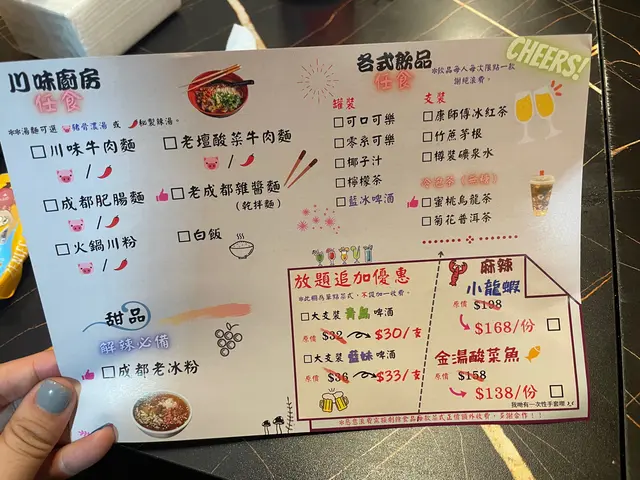 川味廚房
任食
**湯麵可選 豬骨濃湯 或 秘製辣湯。
川味牛肉麵
/
老壇酸菜牛肉麵
/
成都肥腸麵
/
老成都雜醬麵
(乾拌麵)
火鍋川粉
/
白飯
甜品
解辣必備
成都老冰粉
各式飲品
任食
*飲品每人每次限點一款
謝絕浪費。
CHEERS!
罐裝
可口可樂
零系可樂
椰子汁
檸檬茶
藍冰啤酒
支裝
康師傅冰紅茶
竹蔗茅根
樽裝礦泉水
冷泡茶(無糖)
蜜桃烏龍茶
菊花普洱茶
放題追加優惠
*此欄為單點菜式,不設加一收費。
大支裝 青島 啤酒
原價 $32 $30/支
大支裝 藍妹 啤酒
原價 $36 $33/支
麻辣
小龍蝦
原價 $198
$168/份
金湯酸菜魚
原價 $158
$138/份
我哋有一次性手套㗎